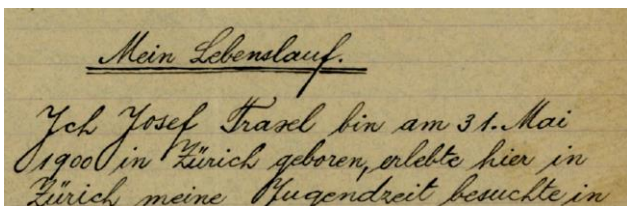 Mein Lebenslauf.
Ich Josef Traxel bin am 31. Mai
1900 in Zürich geboren, erlebte hier in
Zürich meine Jugendzeit besuchte in